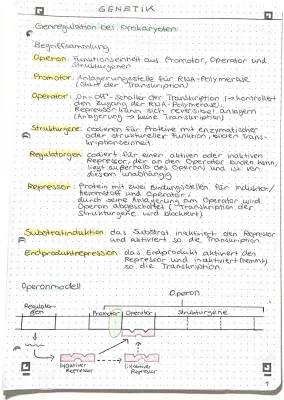 GENETIK
Genregulation bei Prokaryoten
Begriffsammlung
Operon: Funktionseinheit aus Promotor, Operator und
Strukturgenen
Promotor: Anlagerungsstelle für RNA-Polymerase
(Start der Transkription)
Operator: "On-Off"-Schalter der Transkription (→ kontrolliert
den Zugang der RNA-Polymerase).
Repressor kann sich reversibel anlagern
(Anlagerung → keine Transkription)
Strukturgene: codieren für Proteine mit enzymatischer
oder struktureller Funktion, bilden Trans-
kriptionseinheit
Regulatorgen: codiert für einen aktiven oder inaktiven
Repressor, der an den Operator binden kann,
liegt außerhalb des Operons und ist von
diesem unabhängig
Repressor: Protein mit zwei Bindungsstellen für Induktor/
Hemmstoff und Operator;
durch seine Anlagerung am Operator wird
Operon abgeschaltet (Transkription der
Strukturgene wird blockiert)
Substratinduktion: das Substrat inaktiviert den Repressor
und aktiviert so die Transkription
Endproduktrepression: das Endprodukt aktiviert den
Repressor und inaktiviert (hemmt)
so die Transkription
Operonmodell
Operon
Regulator-
gen
Promotor
Operator
Strukturgene
inaktiver
Repressor
aktiver
Repressor
1